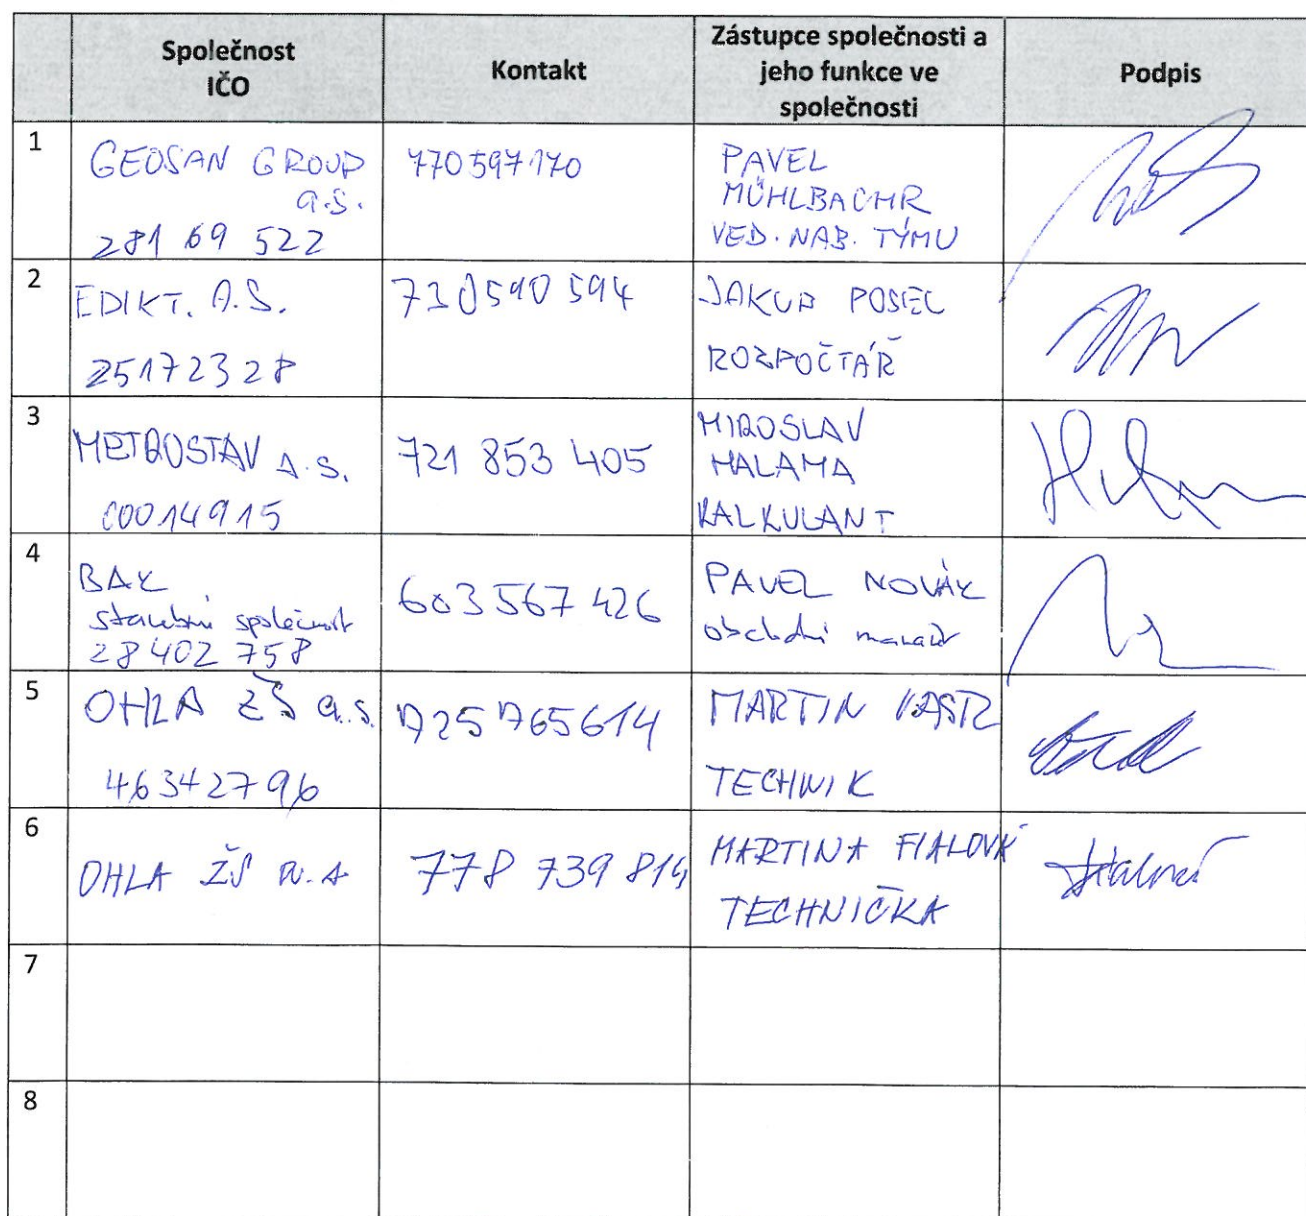 Společnost
IČO
Kontakt
Zástupce společnosti a
jeho funkce ve
společnosti
Podpis
1
GEOSAN GROUP
a.s.
281 69 522
770 597 170
PAVEL
MÜHLBACHR
VED. NAB. TÝMU
2
EDIKT. A.S.
25172328
730590 594
JAKUB POSEL
ROZPOČTÁŘ
3
METROSTAV A.S.
00014915
721 853 405
MIROSLAV
MALAMA
KALKULANT
4
BAK
stavební společnost
28402 758
603 567 426
PAVEL NOVÁK
obchodní
5
OHLA ŽS a.s.
46342796
725 765614
MARTIN
TECHNIK
6
OHLA ŽS
778 739 814
MARTINA FIALOVÁ
TECHNIČKA
7
8